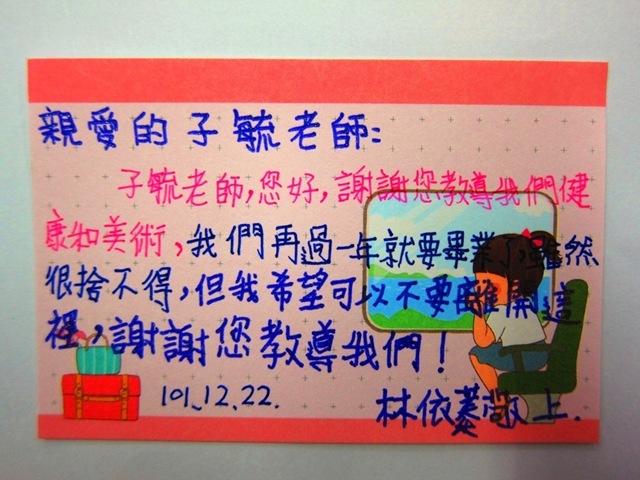 親愛的子毓老師:
子毓老師,您好,謝謝您教導我們健
康和美術,我們再過一年就要畢業了,雖然
很捨不得,但我希望可以不要離開這
裡,謝謝您教導我們!
101.12.22.
林依蓁敬上.